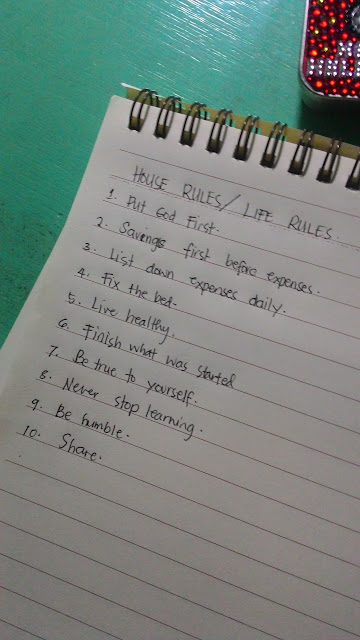 HOUSE RULES/ LIFE RULES.
1. Put God First.
2. Savings first before expenses.
3. List down expenses daily.
4. Fix the bed.
5. Live healthy.
6. Finish what was started
7. Be true to yourself.
8. Never stop learning.
9. Be humble.
10. Share.